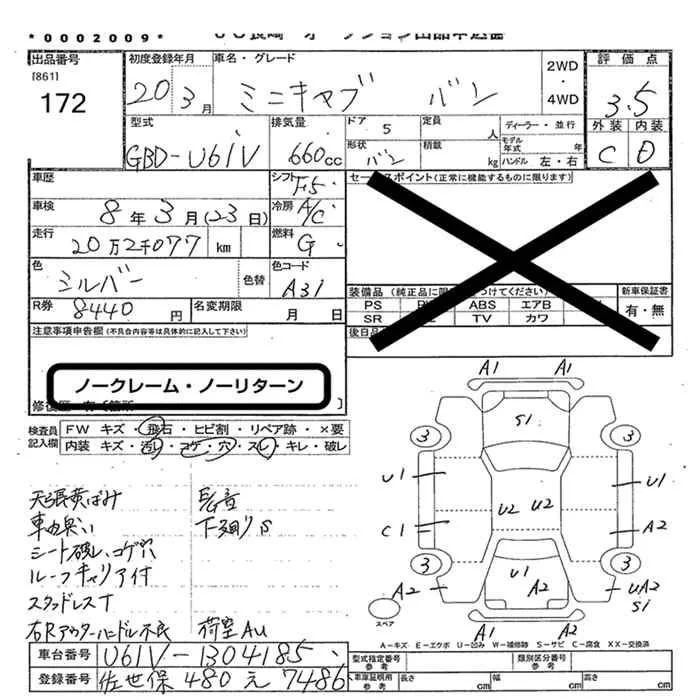 *0002009*
出品番号 初度登録年月 車名・グレード 2WD・4WD 評価点
[861]
172 20年3月 ミニキャブ バン 3.5
型式 排気量 ドア 5 定員 人 ディーラー・並行 外装 内装
GBD-U61V 660cc 形状 バン 積載 kg モデル年式 年 ハンドル 左・右 C D
車歴 シフト F5 セールスポイント(正常に機能するものに限ります)
車検 8年3月(23日) 冷房 A/C
走行 20万2千077km 燃料 G
色 シルバー 色替 色コード A31
装備品 (純正品に限 つけてください) 新車保証書
R券 8440円 名変期限 月 日 PS ABS エアB 有・無
SR TV カワ
注意事項申告欄(不具合内容等は具体的に記入して下さい) 後日品
ノークレーム・ノーリターン
検査員記入欄 FW キズ・飛石・ヒビ割・リペア跡・×要
内装 キズ・汚れ・コゲ・穴・スレ・キレ・破レ
A1 A1
S1
3 3
U1 U1
U2 U2
C1 A2
3 3
U1
A2 A2 UA2
S1
スペア
天張黄ばみ 異音
車内臭い 下廻りS
シート破レ、コゲ穴
ルーフキャリア付
スタッドレスT
右Rアウターハンドル不良 荷室AU
A=キズ E=エクボ U=凹み W=補修跡 S=サビ C=腐食 XX=交換済
車台番号 U61V-1304185 型式指定番号 参考 類別区分番号 参考
登録番号 佐世保 480 え 7486 車庫証明用 参考 長さ cm 幅 cm 高さ cm